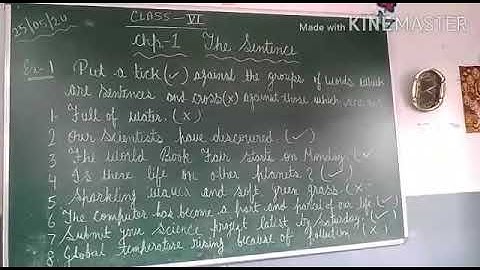 25/05/20
CLASS - VI
Made with KINEMASTER
Chp-1 The Sentence
Ex-1 Put a tick (✓) against the groups of words which
are sentences and cross (x) against those which are not
1. Full of water. (x)
2 Our scientists have discovered. (✓)
3 The World Book Fair starts on Monday. (✓
4 Is there life on other planets? (✓)
5 Sparkling waves and soft green grass. (x
6 The computer has become a part and parcel of our life (✓)
7 Submit your science project latest by Saturday. (✓)
8 Global temperature rising because of pollution (x)